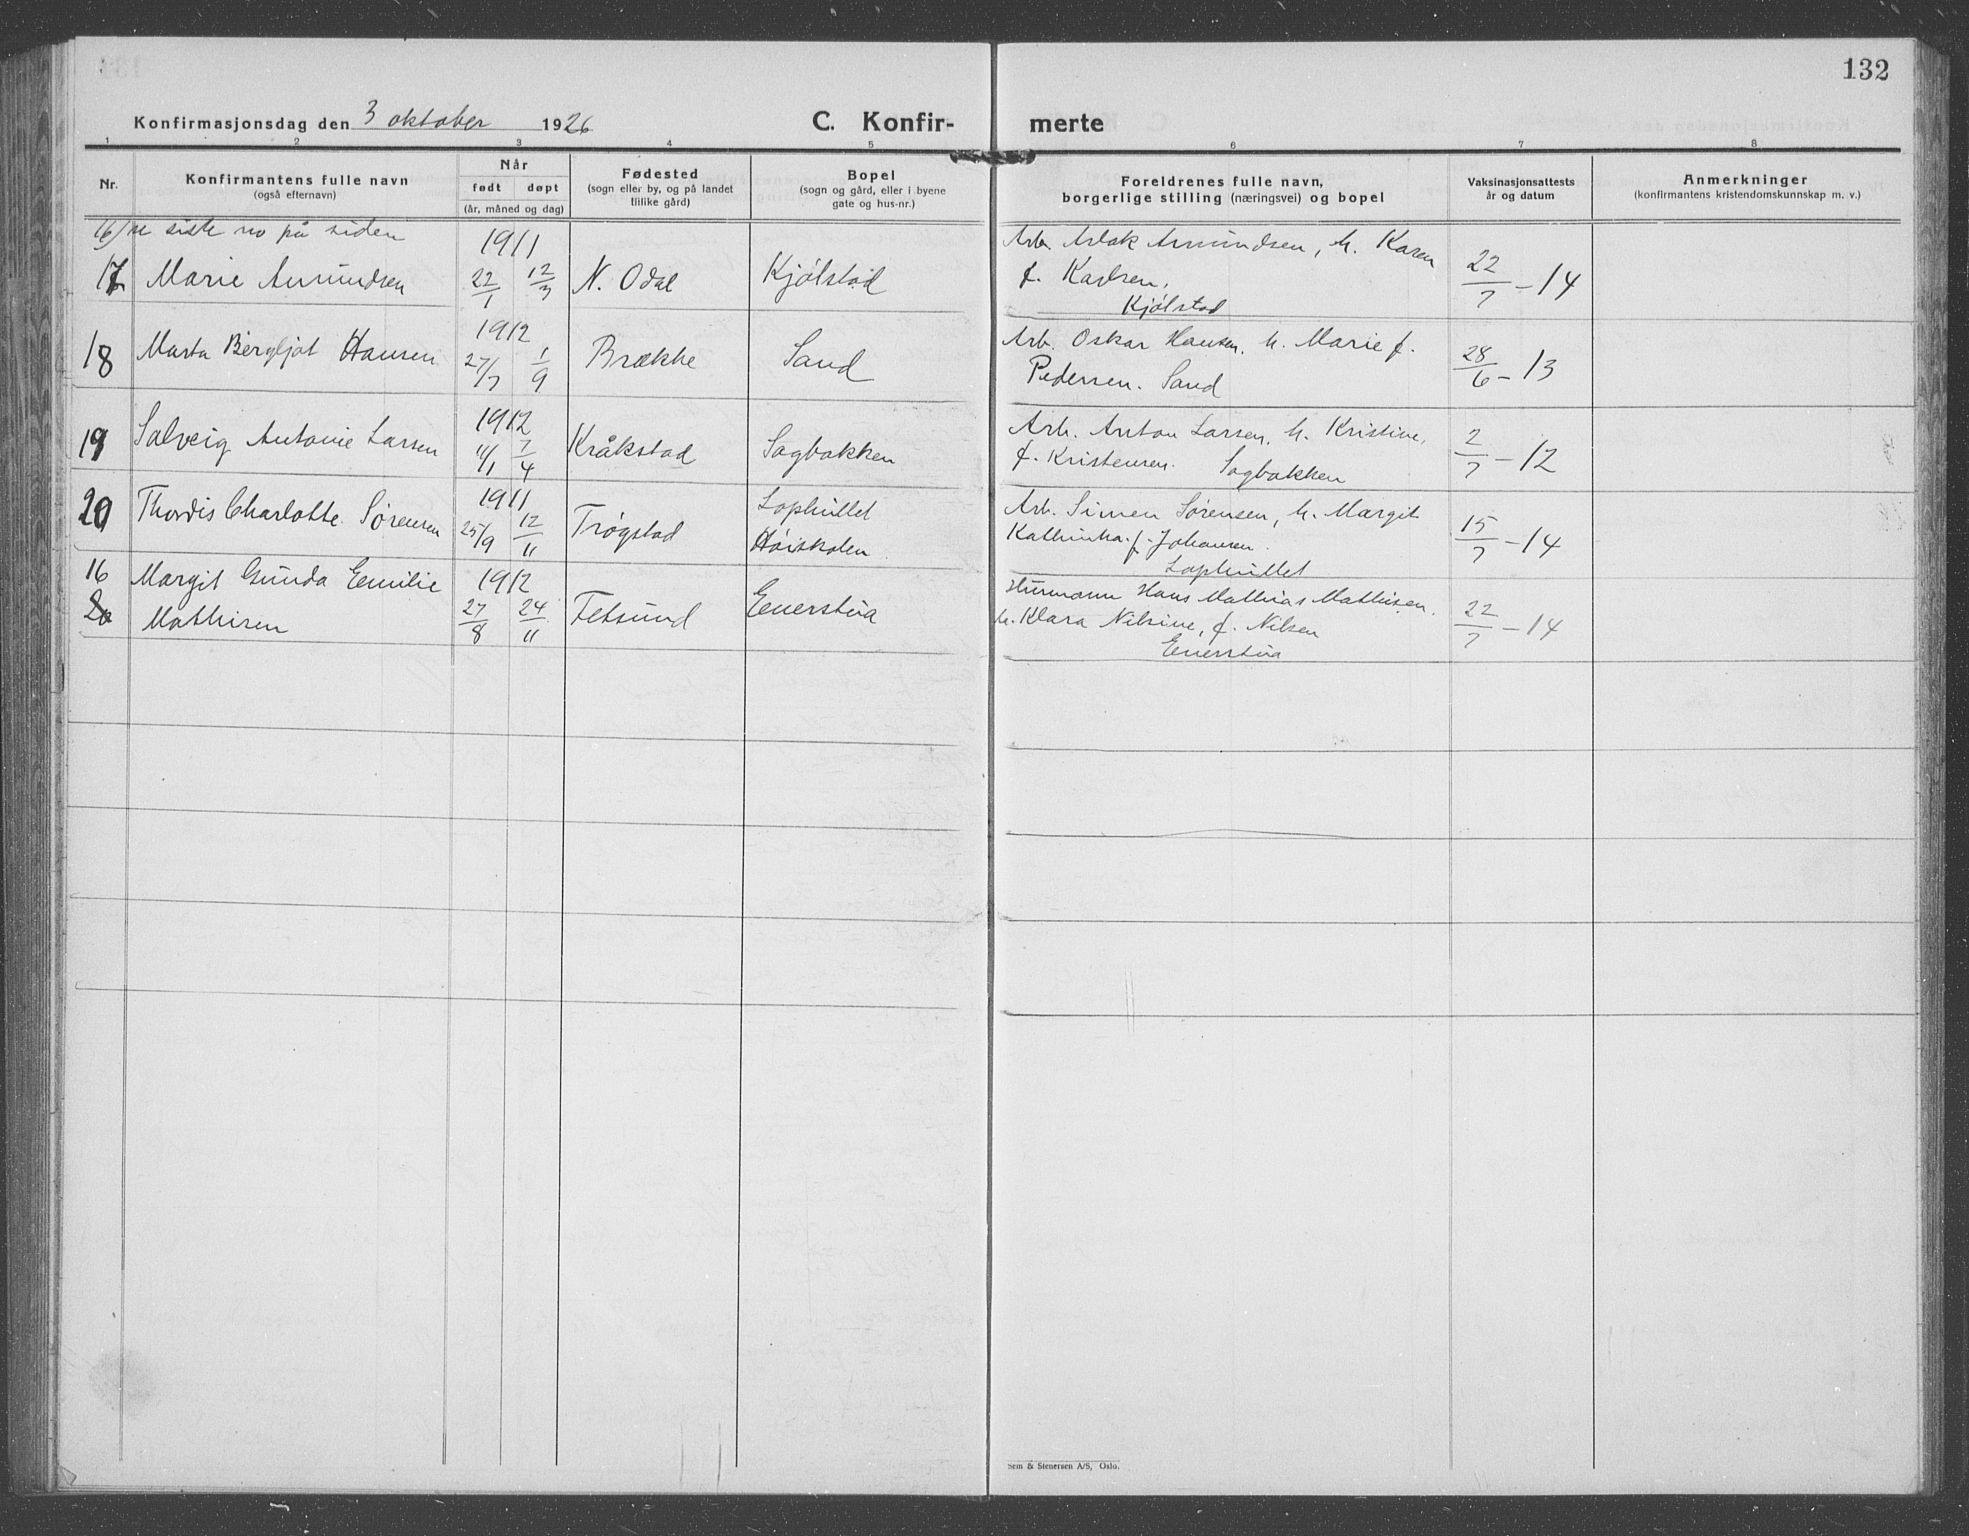 132
Konfirmasjonsdag den 3 oktober 1926
C. Konfir-
merte
1 2 3 4 5 6 7 8
Nr.
Konfirmantens fulle navn
(også efternavn)
Når
født døpt
(år, måned og dag)
Fødested
(sogn eller by, og på landet
tillike gård)
Bopel
(sogn og gård, eller i byene
gate og hus-nr.)
Foreldrenes fulle navn,
borgerlige stilling (næringsvei) og bopel
Vaksinasjonsattests
år og datum
Anmerkninger
(konfirmantens kristendomskunnskap m. v.)
16/se siste no på siden
17 Marie Amundsen 1911 22/1 12/3 N. Odal Kjølstad
Arb. Aslak Amundsen, h. Karen
f. Karlsen,
Kjølstad
22/7 – 14
18 Marta Bergljot Hansen 1912 27/7 1/9 Brække Sand
Arb. Oskar Hansen, h. Marie f.
Pedersen. Sand
28/6 – 13
19 Solveig Antonie Larsen 1912 11/1 7/4 Kråkstad Sagbakken
Arb. Anton Larsen, h. Kristine,
f. Kristensen. Sagbakken
2/7 – 12
20 Thordis Charlotte Sørensen 1911 25/9 12/11 Trøgstad Laphullet
Høiskolen
Arb. Simen Sørensen, h. Margit
Kathinka f. Johansen.
Laphullet
15/7 – 14
16 Margit Gunda Eemilie
20 Mathisen 1912 27/8 24/11 Fetsund Eenerstua
Husmann Hans Mathias Mathisen,
h. Klara Nilsine, f. Nilsen
Eenerstua
22/7 – 14
Sem & Stenersen A/S, Oslo.